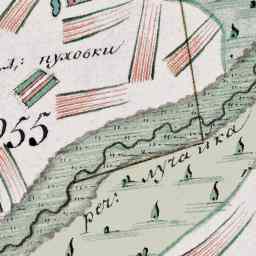 д: пуховки
955
реч: лучайка